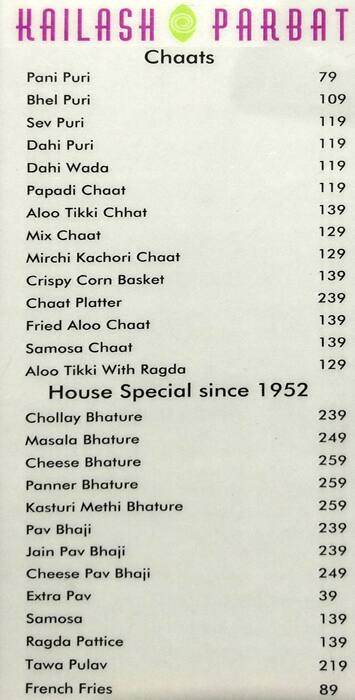 KAILASH PARBAT
Chaats
Pani Puri 79
Bhel Puri 109
Sev Puri 119
Dahi Puri 119
Dahi Wada 119
Papadi Chaat 119
Aloo Tikki Chhat 139
Mix Chaat 129
Mirchi Kachori Chaat 129
Crispy Corn Basket 139
Chaat Platter 239
Fried Aloo Chaat 139
Samosa Chaat 139
Aloo Tikki With Ragda 129
House Special since 1952
Chollay Bhature 239
Masala Bhature 249
Cheese Bhature 259
Panner Bhature 259
Kasturi Methi Bhature 259
Pav Bhaji 239
Jain Pav Bhaji 239
Cheese Pav Bhaji 249
Extra Pav 39
Samosa 139
Ragda Pattice 139
Tawa Pulav 219
French Fries 89